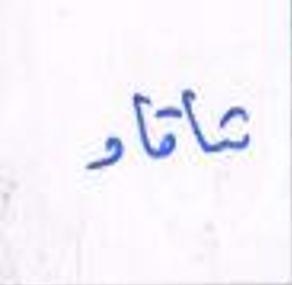 تاقاو